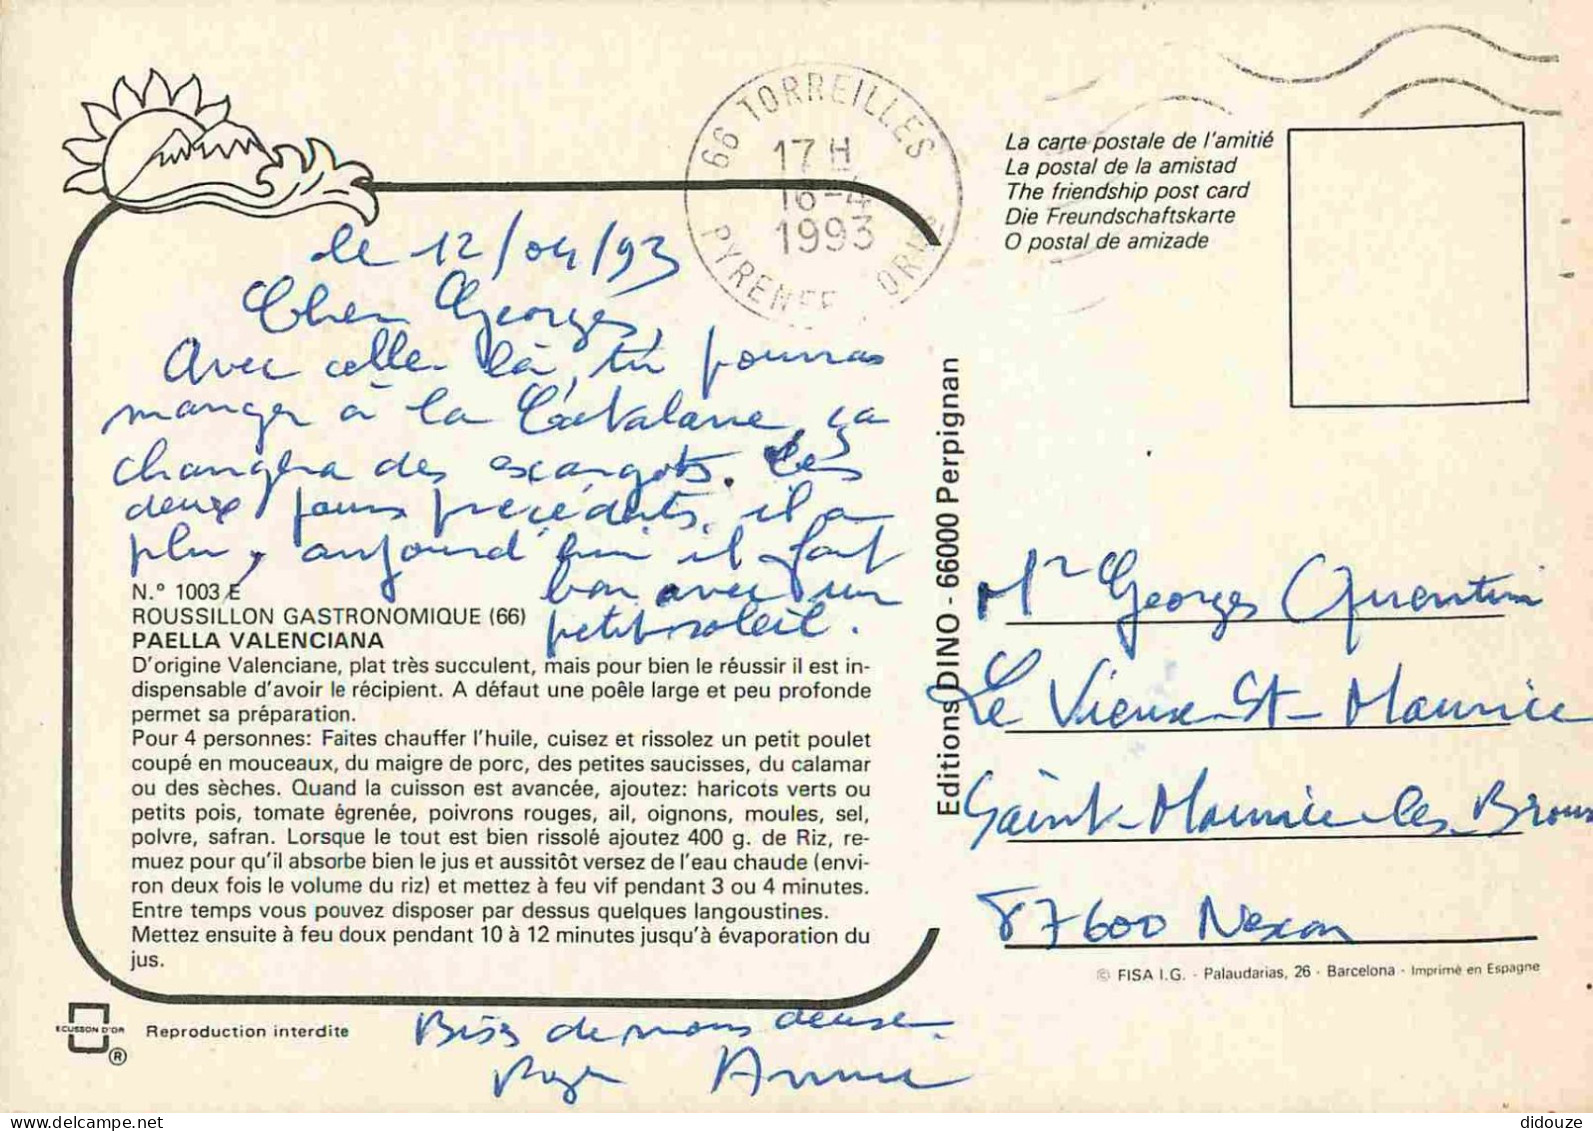 66 TORREILLES
17 H
16-4
1993
PYRENEE ORI
La carte postale de l'amitié
La postal de la amistad
The friendship post card
Die Freundschaftskarte
O postal de amizade
le 12/04/93
Cher Georges,
Avec celle-là, tu pourras
manger à la Catalane, ça
changera des escargots. Les
deux jours précédents, il a
plu, aujourd'hui il fait
bon avec un
petit soleil.
N.° 1003 E
ROUSSILLON GASTRONOMIQUE (66)
PAELLA VALENCIANA
D'origine Valenciane, plat très succulent, mais pour bien le réussir il est in-
dispensable d'avoir le récipient. A défaut une poêle large et peu profonde
permet sa préparation.
Pour 4 personnes: Faites chauffer l'huile, cuisez et rissolez un petit poulet
coupé en mouceaux, du maigre de porc, des petites saucisses, du calamar
ou des sèches. Quand la cuisson est avancée, ajoutez: haricots verts ou
petits pois, tomate égrenée, poivrons rouges, ail, oignons, moules, sel,
polvre, safran. Lorsque le tout est bien rissolé ajoutez 400 g. de Riz, re-
muez pour qu'il absorbe bien le jus et aussitôt versez de l'eau chaude (envi-
ron deux fois le volume du riz) et mettez à feu vif pendant 3 ou 4 minutes.
Entre temps vous pouvez disposer par dessus quelques langoustines.
Mettez ensuite à feu doux pendant 10 à 12 minutes jusqu'à évaporation du
jus.
Bises de nous deux
Roger Annie
ECUSSON D'OR
®
Reproduction interdite
Editions DINO - 66000 Perpignan
Mr Georges Quentin
Le Vieux-St-Maurice
Saint-Maurice-les-Brous
87600 Nexon
© FISA I.G. - Palaudarias, 26 - Barcelona - Imprimé en Espagne
didouze